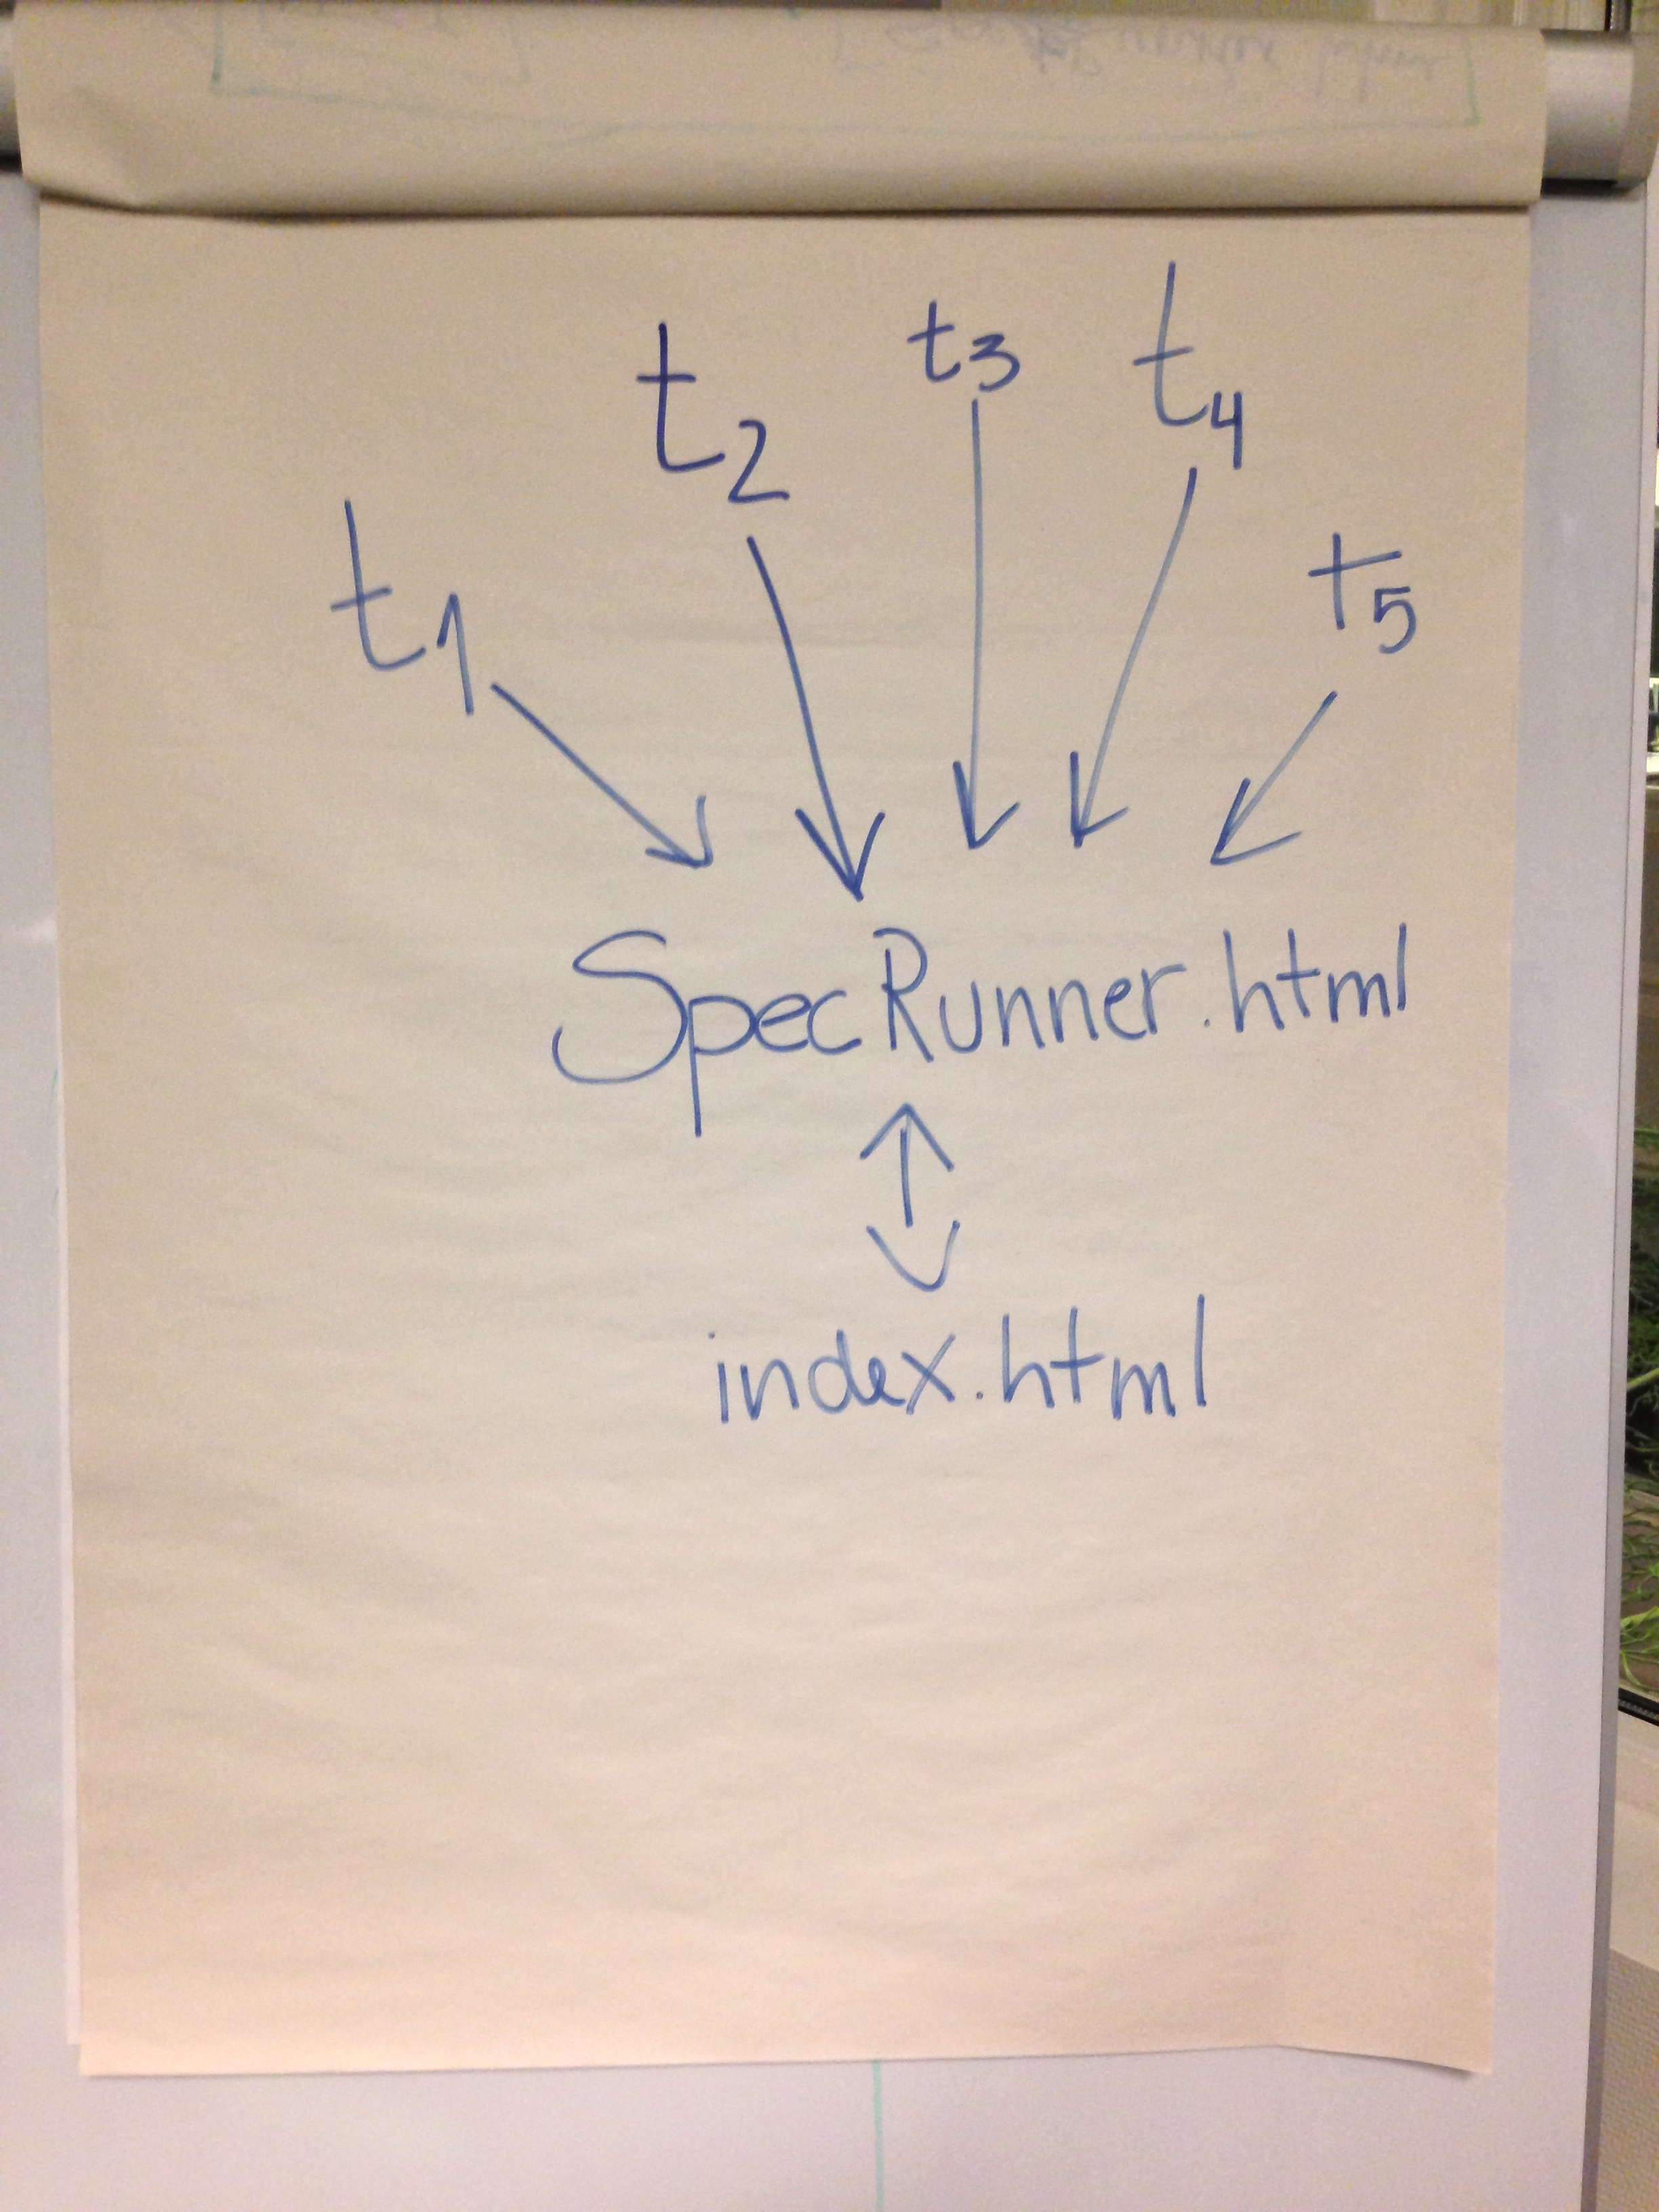 t1
t2
t3
t4
t5
SpecRunner.html
index.html